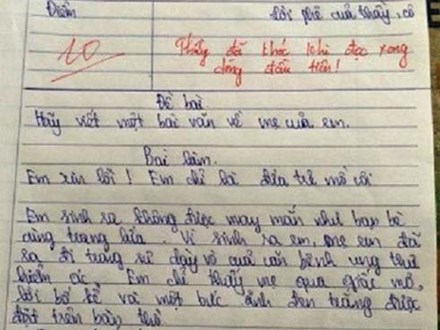 Điểm
Lời phê của thầy, cô
10
Thầy đã khóc khi đọc xong
dòng đầu tiên!
Đề bài
Hãy viết một bài văn về mẹ của em.
Bài làm.
Em xin lỗi! Em chỉ là đứa trẻ mồ côi
Em sinh ra không được may mắn như bạn bè
cùng trang lứa. Vì sinh ra em, mẹ em đã
ra đi trong sự dày vò của căn bệnh ung thư
hiểm ác. Em chỉ thấy mẹ qua giấc mơ,
lời bố kể và một bức ảnh đen trắng được
đặt trên bàn thờ